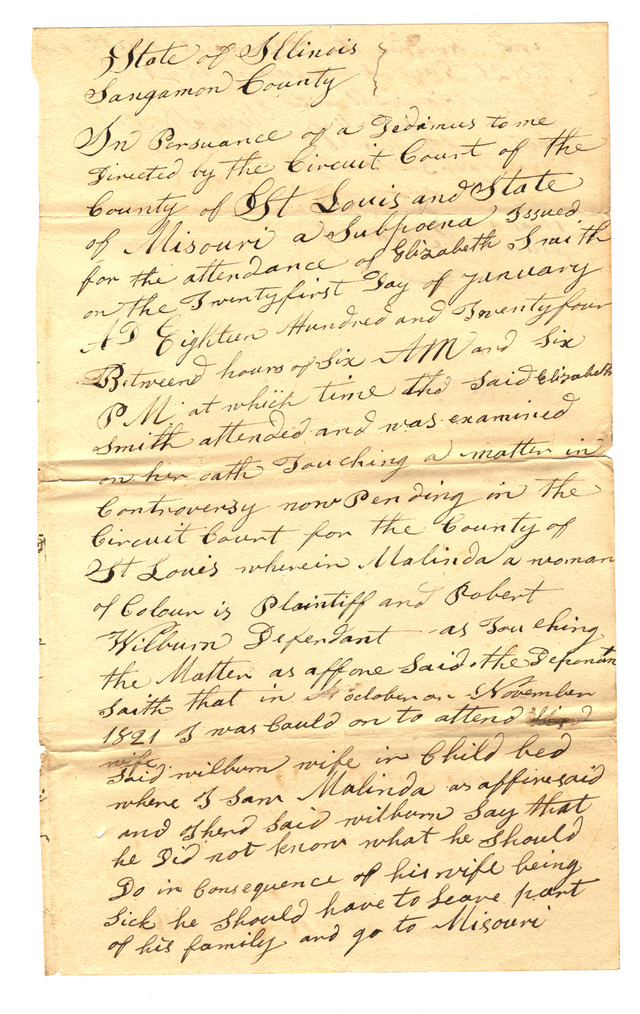 State of Illinois
Sangamon County
In Persuance of a Dedimus to me
Directed by the Circuit Court of the
County of St Louis and State
of Misouri a Subpoena Issued
for the attendance of Elizabeth Smith
on the Twentyfirst Day of January
AD Eighteen Hundred and Twentyfour
Betweend hours of Six AM and Six
P M at which time the Said Elizabeth
Smith attended and was examined
on her oath Touching a matter in
Controversy now Pending in the
Circuit Court for the County of
St Louis wherein Malinda a woman
of Colour is Plaintiff and Robert
Wilburn Defendant as Touching
the Matter as affore Said the Deponant
Saith that in october or November
1821 I was Could on to attend
wife
Said wilburn wife in Child bed
where I Saw Malinda as afforesaid
and I herd Said wilburn Say that
he Did not know what he Should
Do in Consequence of his wife being
Sick he Should have to Leave part
of his family and go to Misouri